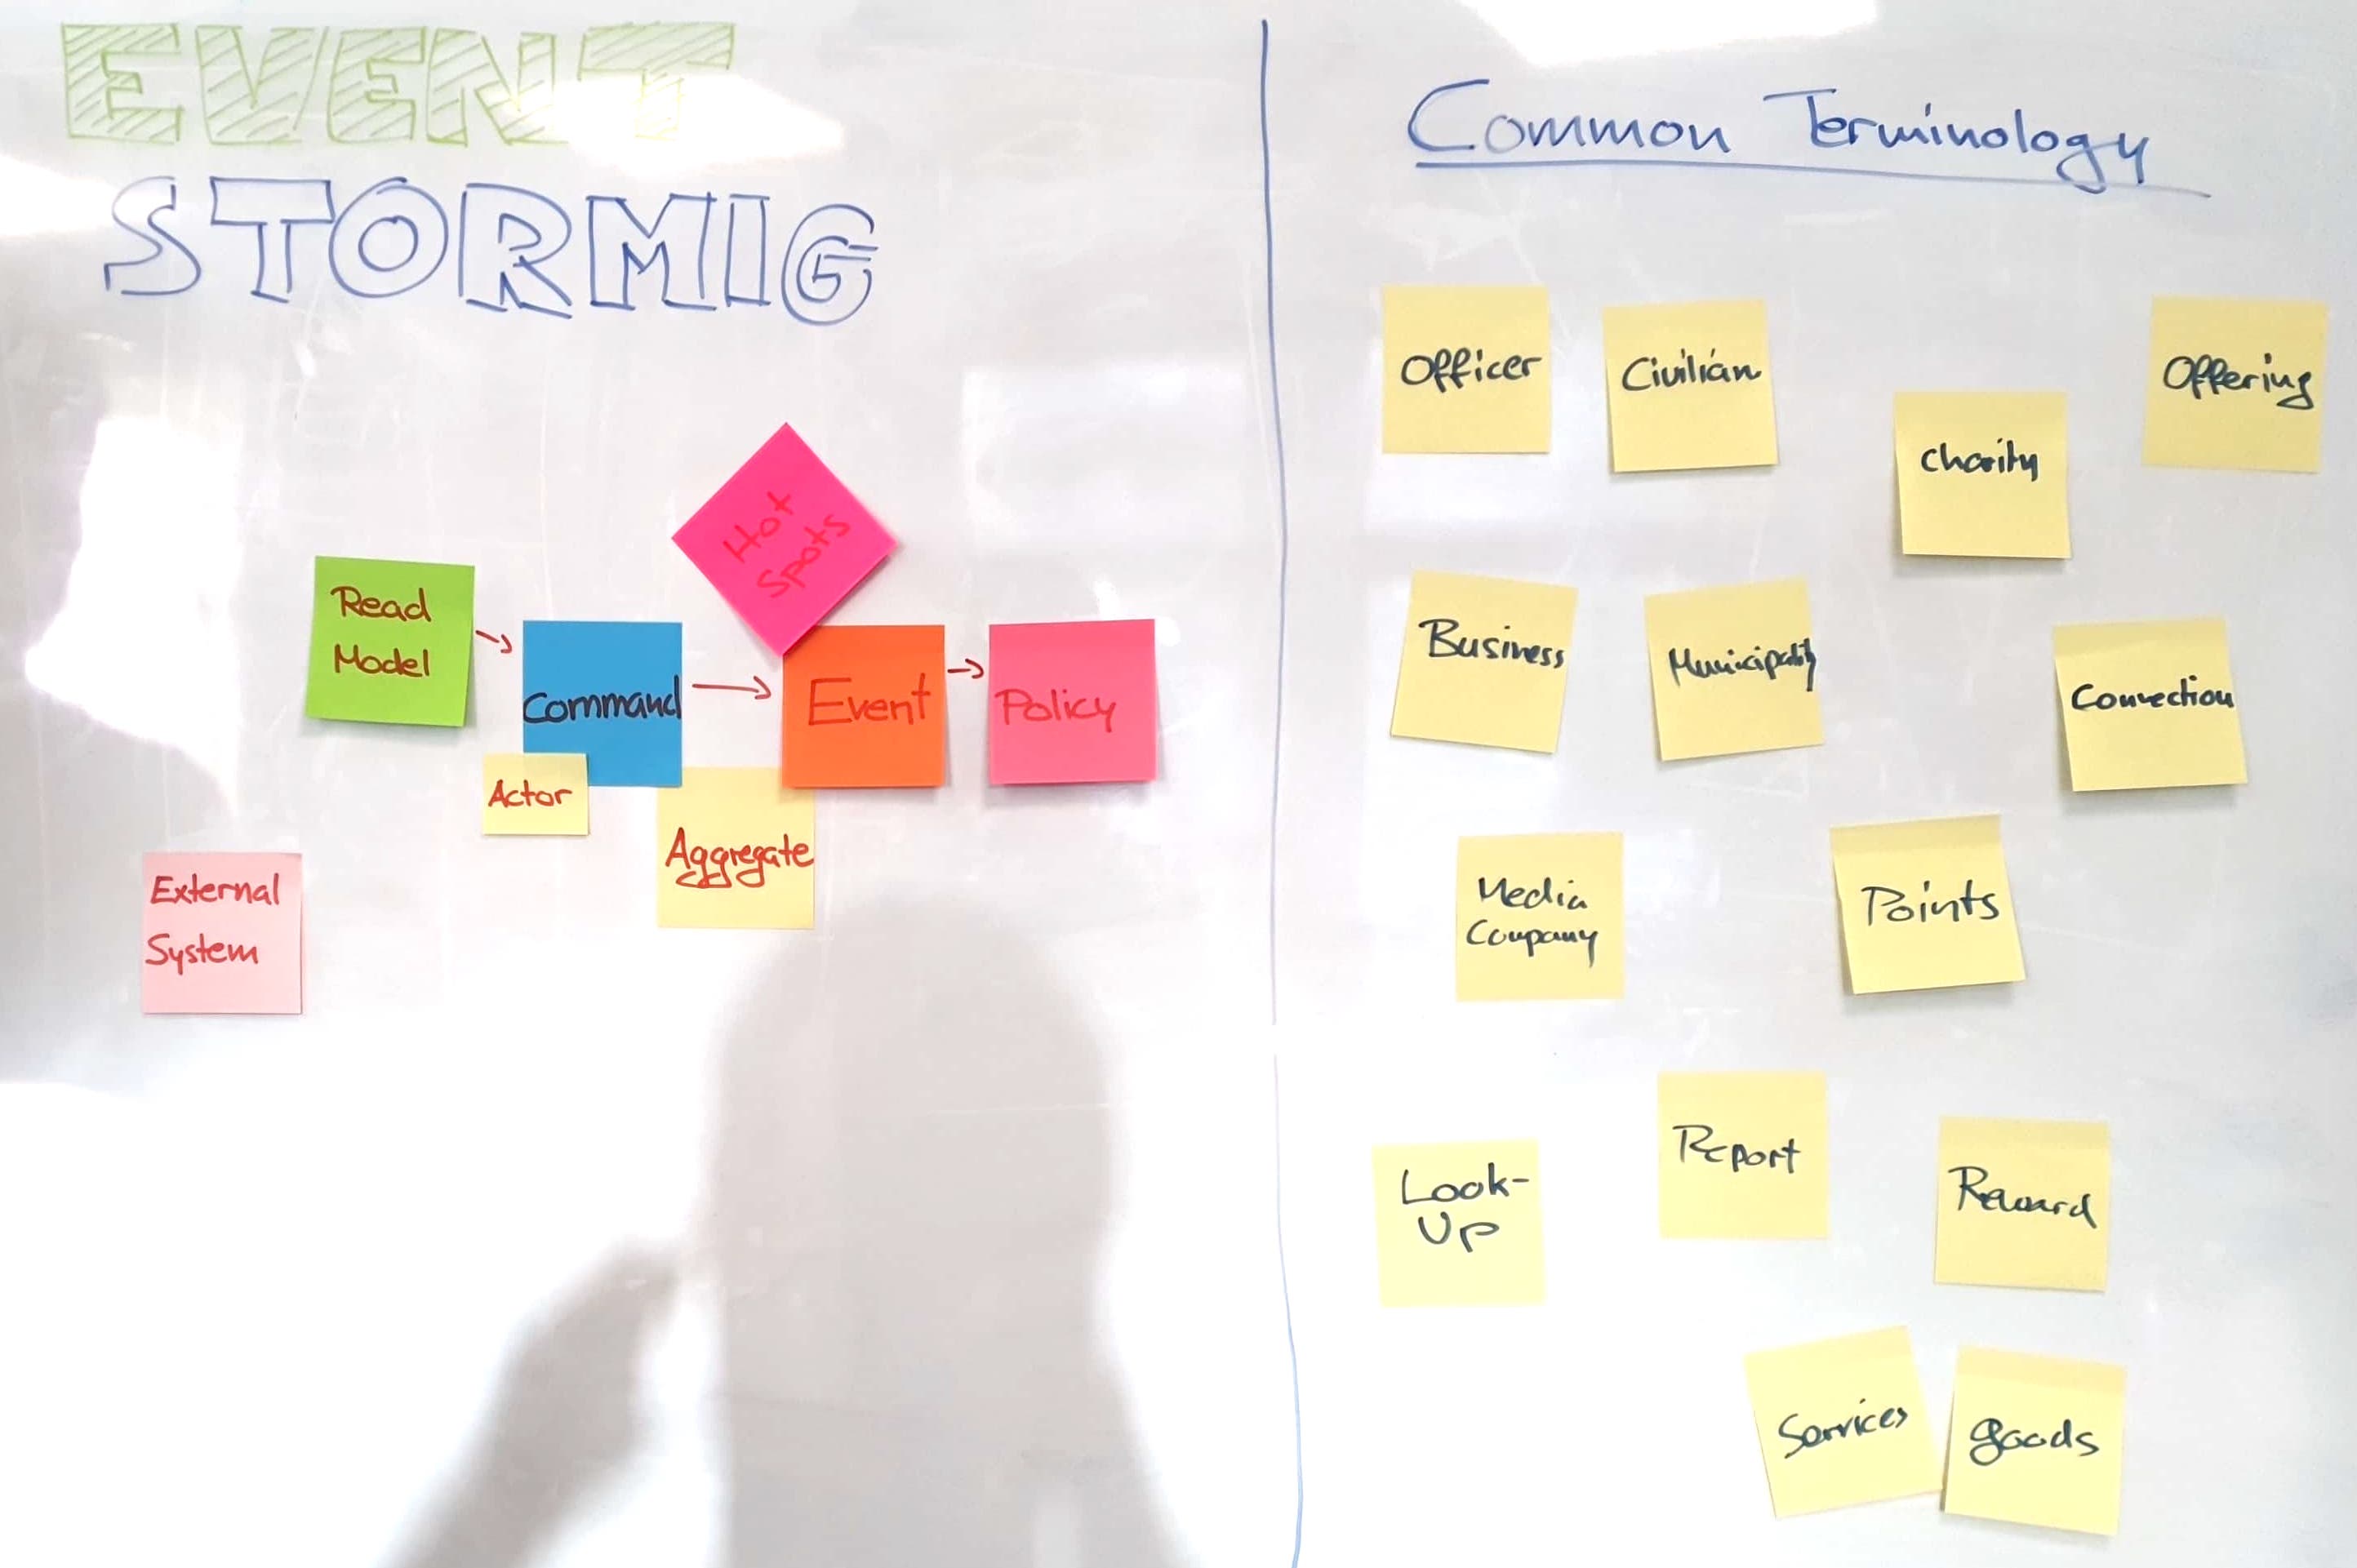 EVENT
STORMIG
Hot
Spots
Read
Model
Command
Event
Policy
Actor
Aggregate
External
System
Common Terminology
Officer
Civilian
Charity
Offering
Business
Municipality
Connection
Media
Company
Points
Look-
Up
Report
Reward
Services
goods